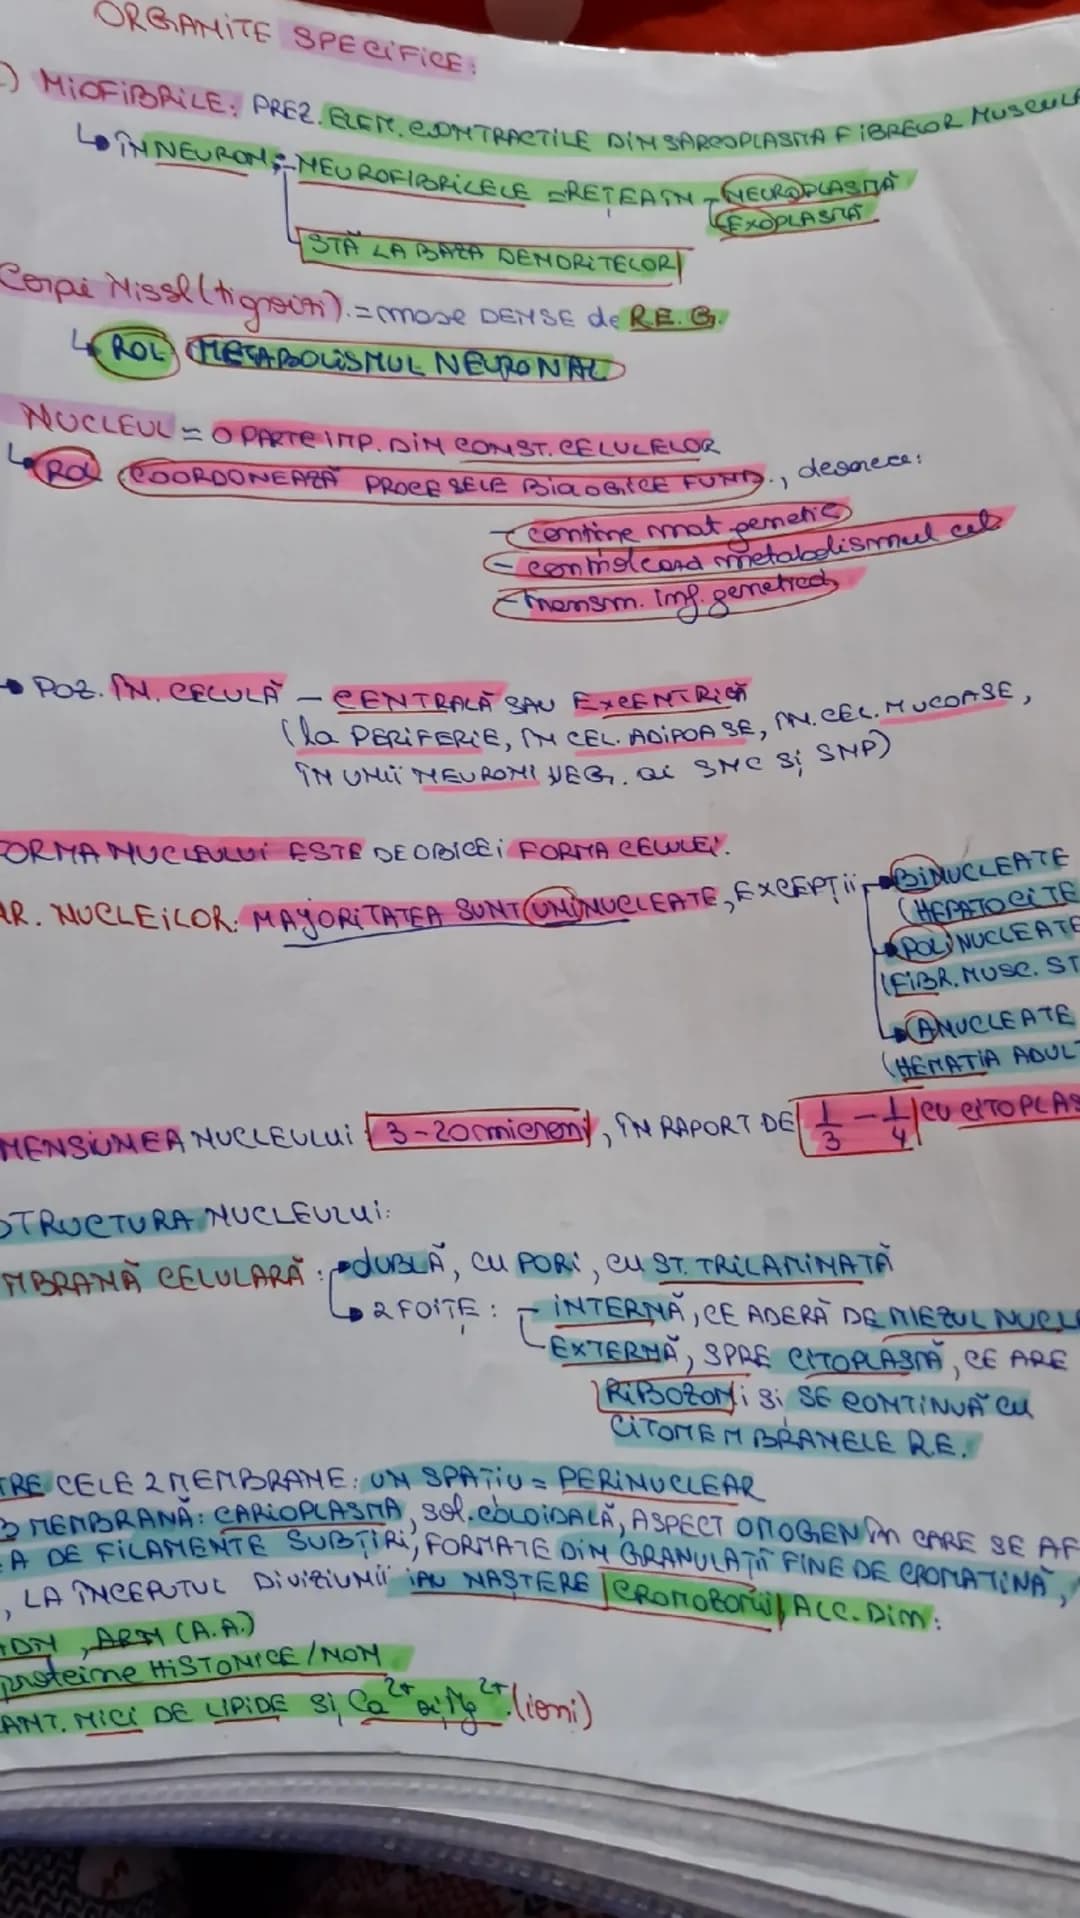 ORGANITE SPECIFICE:
) MIOFIBRILE: PREZ. ELEM. CONTRACTILE DIN SARCOPLASMA FIBRELOR MUSCULA
ÎN NEURON: - NEUROFIBRILELE = REȚEA ÎN - NEUROPLASMĂ
EXOPLASMĂ
STĂ LA BAZA DENDRITELOR
Corpi Nissl (tigroizi) = mase DENSE de R.E.G.
ROL METABOLISMUL NEURONAL
NUCLEUL = O PARTE IMP. DIN CONST. CELULELOR
ROL COORDONEAZĂ PROCESELE BIOLOGICE FUND., deoarece:
- conține mat genetic
- controlează metabolismul cel
- transm. inf. genetică
POZ. ÎN. CELULĂ - CENTRALĂ SAU EXCENTRICĂ
(la PERIFERIE, ÎN CEL. ADIPOASE, ÎN. CEL. MUCOASE,
ÎN UNII NEURONI VEG. ai SNC și SNP)
FORMA NUCLEULUI ESTE DEOBICEI FORMA CELULEI.
AR. NUCLEILOR: MAJORITATEA SUNT UNINUCLEATE, EXCEPȚII BINUCLEATE
(HEPATOCITE
POLINUCLEATE
(FIBR. MUSC. ST
ANUCLEATE
(HEMATIA ADULT
MENSIUNEA NUCLEULUI 3-20 microni, ÎN RAPORT DE 1/3 - 1/4 CU CITOPLAS
STRUCTURA NUCLEULUI:
MBRANĂ CELULARĂ: DUBLĂ, CU PORI, CU ST. TRILAMINATĂ
2 FOIȚE: - INTERNĂ, CE ADERĂ DE MIEZUL NUCL
- EXTERNĂ, SPRE CITOPLASMĂ, CE ARE
RIBOZOMI și SE CONTINUĂ CU
CITOMEMBRANELE R.E.
TRE CELE 2 MEMBRANE: UN SPAȚIU = PERINUCLEAR
B MEMBRANĂ: CARIOPLASMA, sol. COLOIDALĂ, ASPECT OMOGEN ÎN CARE SE AF
A DE FILAMENTE SUBȚIRI, FORMATE DIN GRANULAȚII FINE DE CROMATINĂ,
, LA ÎNCEPUTUL DIVIZIUNII IAU NAȘTERE CROMOZOMII, ALC. DIN:
ADN, ARN (A.A.)
proteine HISTONICE / NON
ANT. MICI DE LIPIDE și Ca2+ și Mg2+ (ioni)